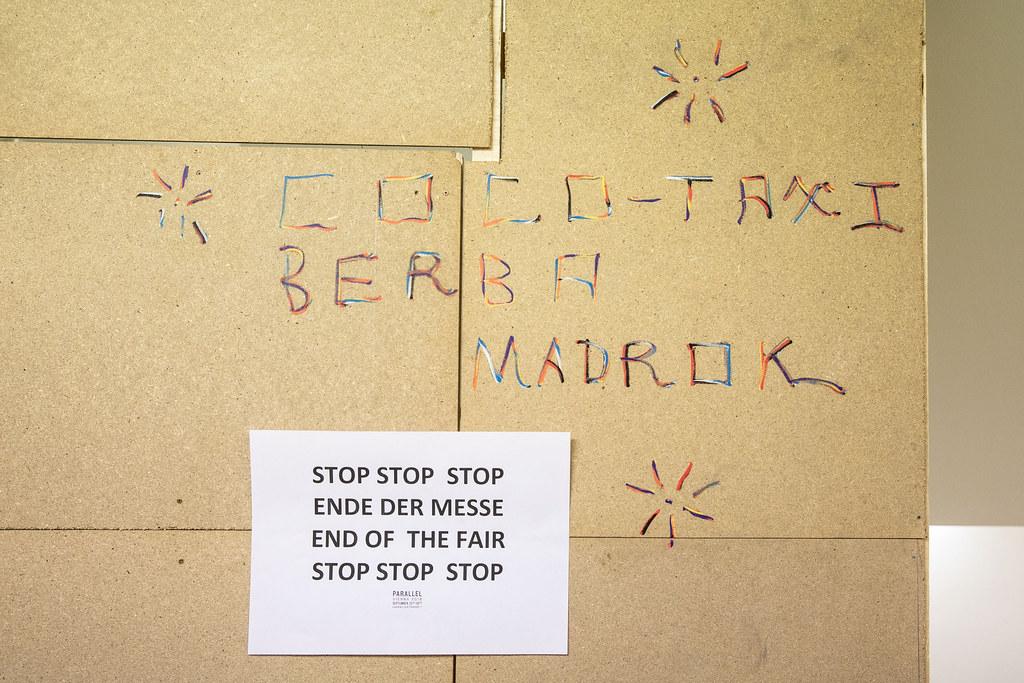 COCO-TAXI
BERBA
MADROK
STOP STOP STOP
ENDE DER MESSE
END OF THE FAIR
STOP STOP STOP
PARALLEL
VIENNA 2018